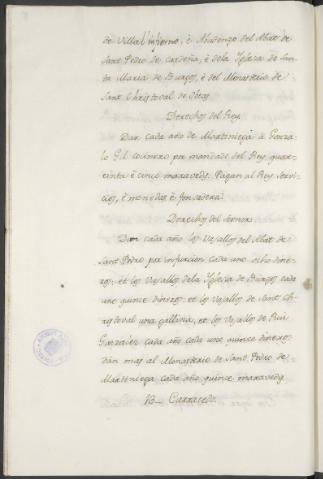 de Villa l infierno, è Abadengo del Abat de
Sant Pedro de Cardeña, è dela Iglesia de San-
ta Maria de Burgos, è del Monasterio de
Sant Christoval de Ibeas.
Derechos del Rey.
Dan cada año de Martiniega à Gonza-
lo Gil por mandado del Rey quare-
inta è cinco maravedis. Pagan al Rey Servi-
cios, è monedas è fonsadera.
Derechos del Señor.
Dan cada año los Vasallos del Abat de
Sant Pedro por infurcion cada uno ocho dine-
ros, et los Vasallos dela Iglesia de Burgos cada
uno quince dineros, et los Vasallos de Sant Ch-
ristoval una gallina, et los Vasallos de Rui
Gonzalez cada año cada uno quince dineros.
dan mas al Monasterio de Sant Pedro de
Martiniega cada año quince maravedis.
Carracedo.